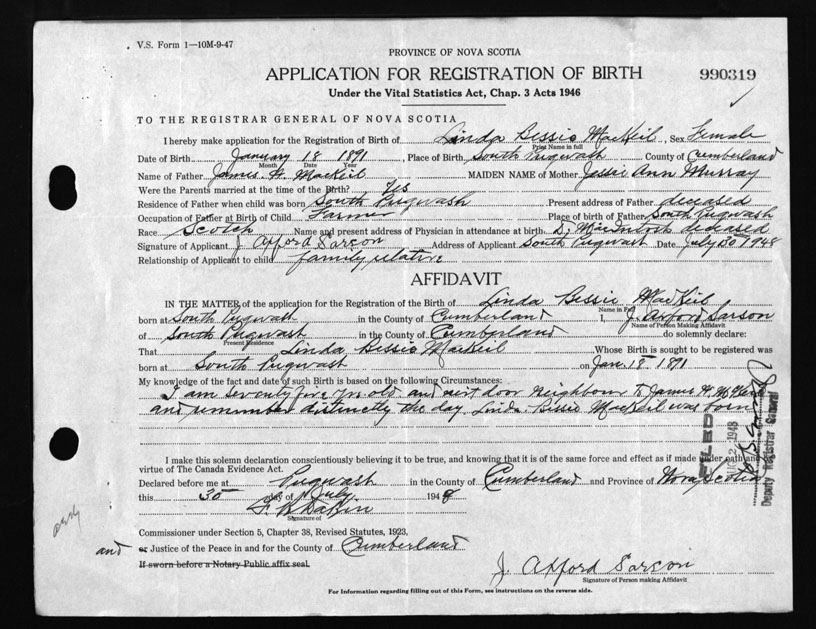 V.S. Form 1—10M-9-47
PROVINCE OF NOVA SCOTIA
APPLICATION FOR REGISTRATION OF BIRTH
990319
Under the Vital Statistics Act, Chap. 3 Acts 1946
TO THE REGISTRAR GENERAL OF NOVA SCOTIA
I hereby make application for the Registration of Birth of Linda Bessie MacKeil, Sex Female
Print Name in full
Date of Birth January 18 1891, Place of Birth South Pugwash County of Cumberland
Month Date Year
Name of Father James H. MacKeil MAIDEN NAME of Mother Jessie Ann Murray
Were the Parents married at the time of the Birth? Yes
Residence of Father when child was born South Pugwash Present address of Father deceased
Occupation of Father at Birth of Child Farmer Place of birth of Father South Pugwash
Race Scotch Name and present address of Physician in attendance at birth. Dr MacIntosh deceased
Signature of Applicant J. Axford Sarson Address of Applicant South Pugwash Date July 30 1948
Relationship of Applicant to child family relative
AFFIDAVIT
IN THE MATTER of the application for the Registration of the Birth of Linda Bessie MacKeil
Name in Full
born at South Pugwash in the County of Cumberland I, J. Axford Sarson
Name of Person Making Affidavit
of South Pugwash in the County of Cumberland do solemnly declare:
Present Residence
That Linda Bessie MacKeil Whose Birth is sought to be registered was
born at South Pugwash on Jan. 18 1891
My knowledge of the fact and date of such Birth is based on the following Circumstances:
I am seventy five yrs old and next door neighbour to James H.
and remember distinctly the day Linda Bessie MacKeil was born
I make this solemn declaration conscientiously believing it to be true, and knowing that it is of the same force and effect as if made under oath and
virtue of The Canada Evidence Act.
Declared before me at Pugwash in the County of Cumberland and Province of Nova Scotia
this 30 day of July 1948
Signature of
Commissioner under Section 5, Chapter 38, Revised Statutes, 1923,
and or Justice of the Peace in and for the County of Cumberland
If sworn before a Notary Public affix seal.
J. Axford Sarson
Signature of Person making Affidavit
For Information regarding filling out of this Form, see instructions on the reverse side.
FILED
2 1948
Deputy Registrar General